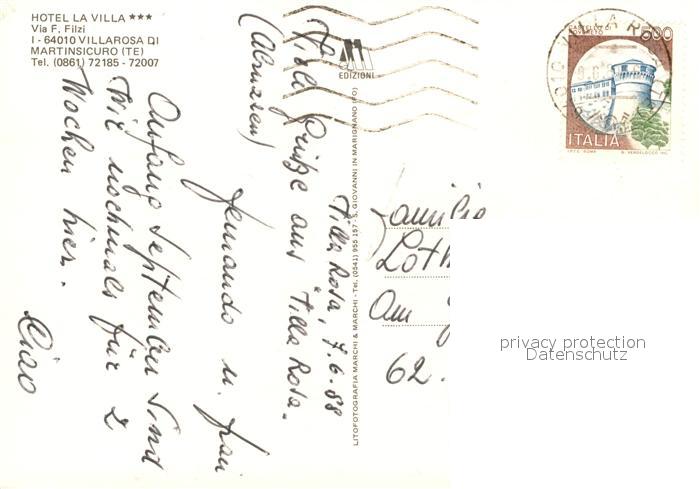 HOTEL LA VILLA ***
Via F. Filzi
I - 64010 VILLAROSA DI
MARTINSICURO (TE)
Tel. (0861) 72185 - 72007
Villa Rosa, 7.6.88
Viele Grüße aus Villa Rosa.
(Abruzzen)
Fernando u. Frau
Anfang September sind
wir nochmals für 2
Wochen hier.
Ciao
EDIZIONI
LITOFOTOGRAFIA MARCHI & MARCHI - Tel. (0541) 955 157 - S. GIOVANNI IN MARIGNANO (FO)
500
ITALIA
Familie
Loth
Am
62.
privacy protection
Datenschutz